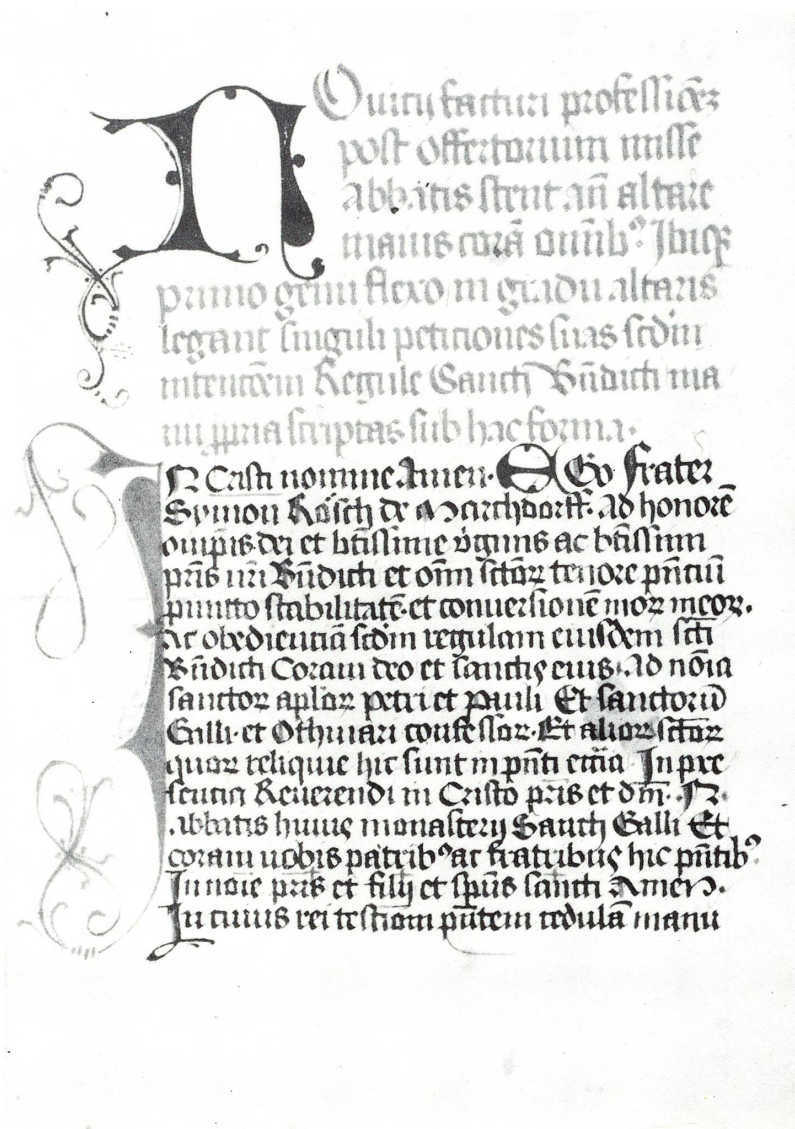 NOuicij facturi professiōez
post offertorium misse
abbatis stent añ altare
maius corā omnibꝰ. Ibiqꝫ
primo genu flexo in gradu altaris
legant singuli peticiones suas scdm
intencōem Regule Sancti Bn̄dicti ma
nu ꝓpria scriptas sub hac forma.
IN Cristi nomine Amen. EGo frater
Symon Rösch de Marchdorff. Ad honorē
omp̄tis dei et btīssime v̄ginis ac btīssimi
pr̄is nr̄i Bn̄dicti et om̄ sctōꝝ tenore pn̄ciū
ꝓmitto stabilitatē. et conuersionē moꝝ meoꝝ.
Ac obedienciā scdm regulam eiusdem scti
Bn̄dicti Coram deo et sanctis eius. Ad nōia
sanctoꝝ aplōꝝ petri et Pauli Et sanctorū
Galli. et Othmari confessoꝝ. Et alioꝝ sctōꝝ
quoꝝ reliquie hic sunt in pn̄ti ecc̄ia In pre
sencia Reuerendi in Cristo pr̄is et dn̄i. N.
Abbatis huius monasterij Sancti Galli Et
coram uobis patribꝰ ac fratribus hic pn̄tibꝰ
In noīe pr̄is et filij et sp̄us sancti Amen.
In cuius rei testiom pn̄tem cedulā manu